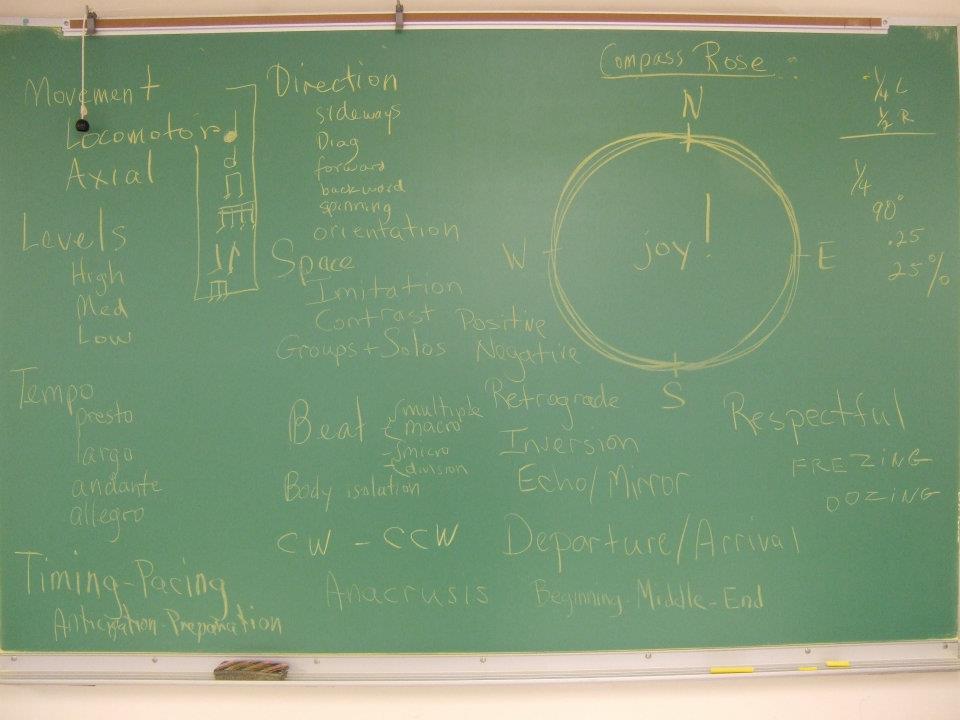 Movement
Locomotor
Axial
Levels
High
Med
Low
Tempo
presto
largo
andante
allegro
Timing-Pacing
Anticipation-Preparation
Direction
sideways
Diag
forward
backward
spinning
orientation
Space
Imitation
Contrast
Groups + Solos
Positive
Negative
Beat
multiple
macro
micro
division
Body isolation
CW - CCW
Anacrusis
Retrograde
Inversion
Echo/Mirror
Departure/Arrival
Beginning-Middle-End
Compass Rose
N
W
joy!
E
S
1/4 L
1/2 R
1/4
90°
.25
25%
Respectful
FREZiNG
OOZiNG